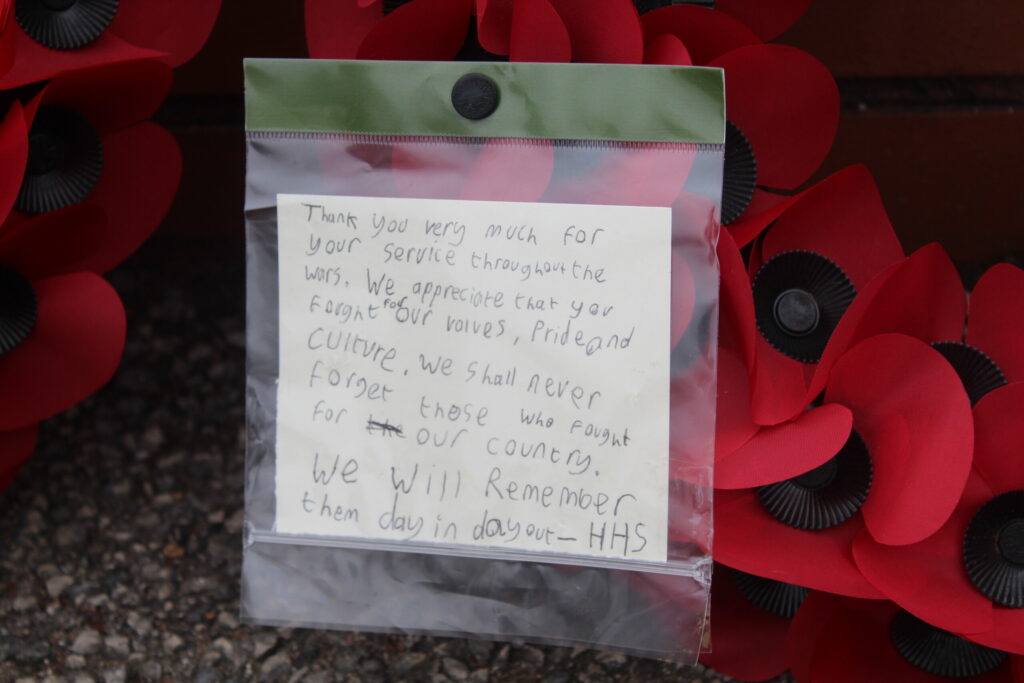 Thank you very much for
your service throughout the
wars. We appreciate that you
Fought for our valves, Pride and
Culture. We Shall never
forget those who Fought
For the our country.
We Will Remember
them day in day out - HHS